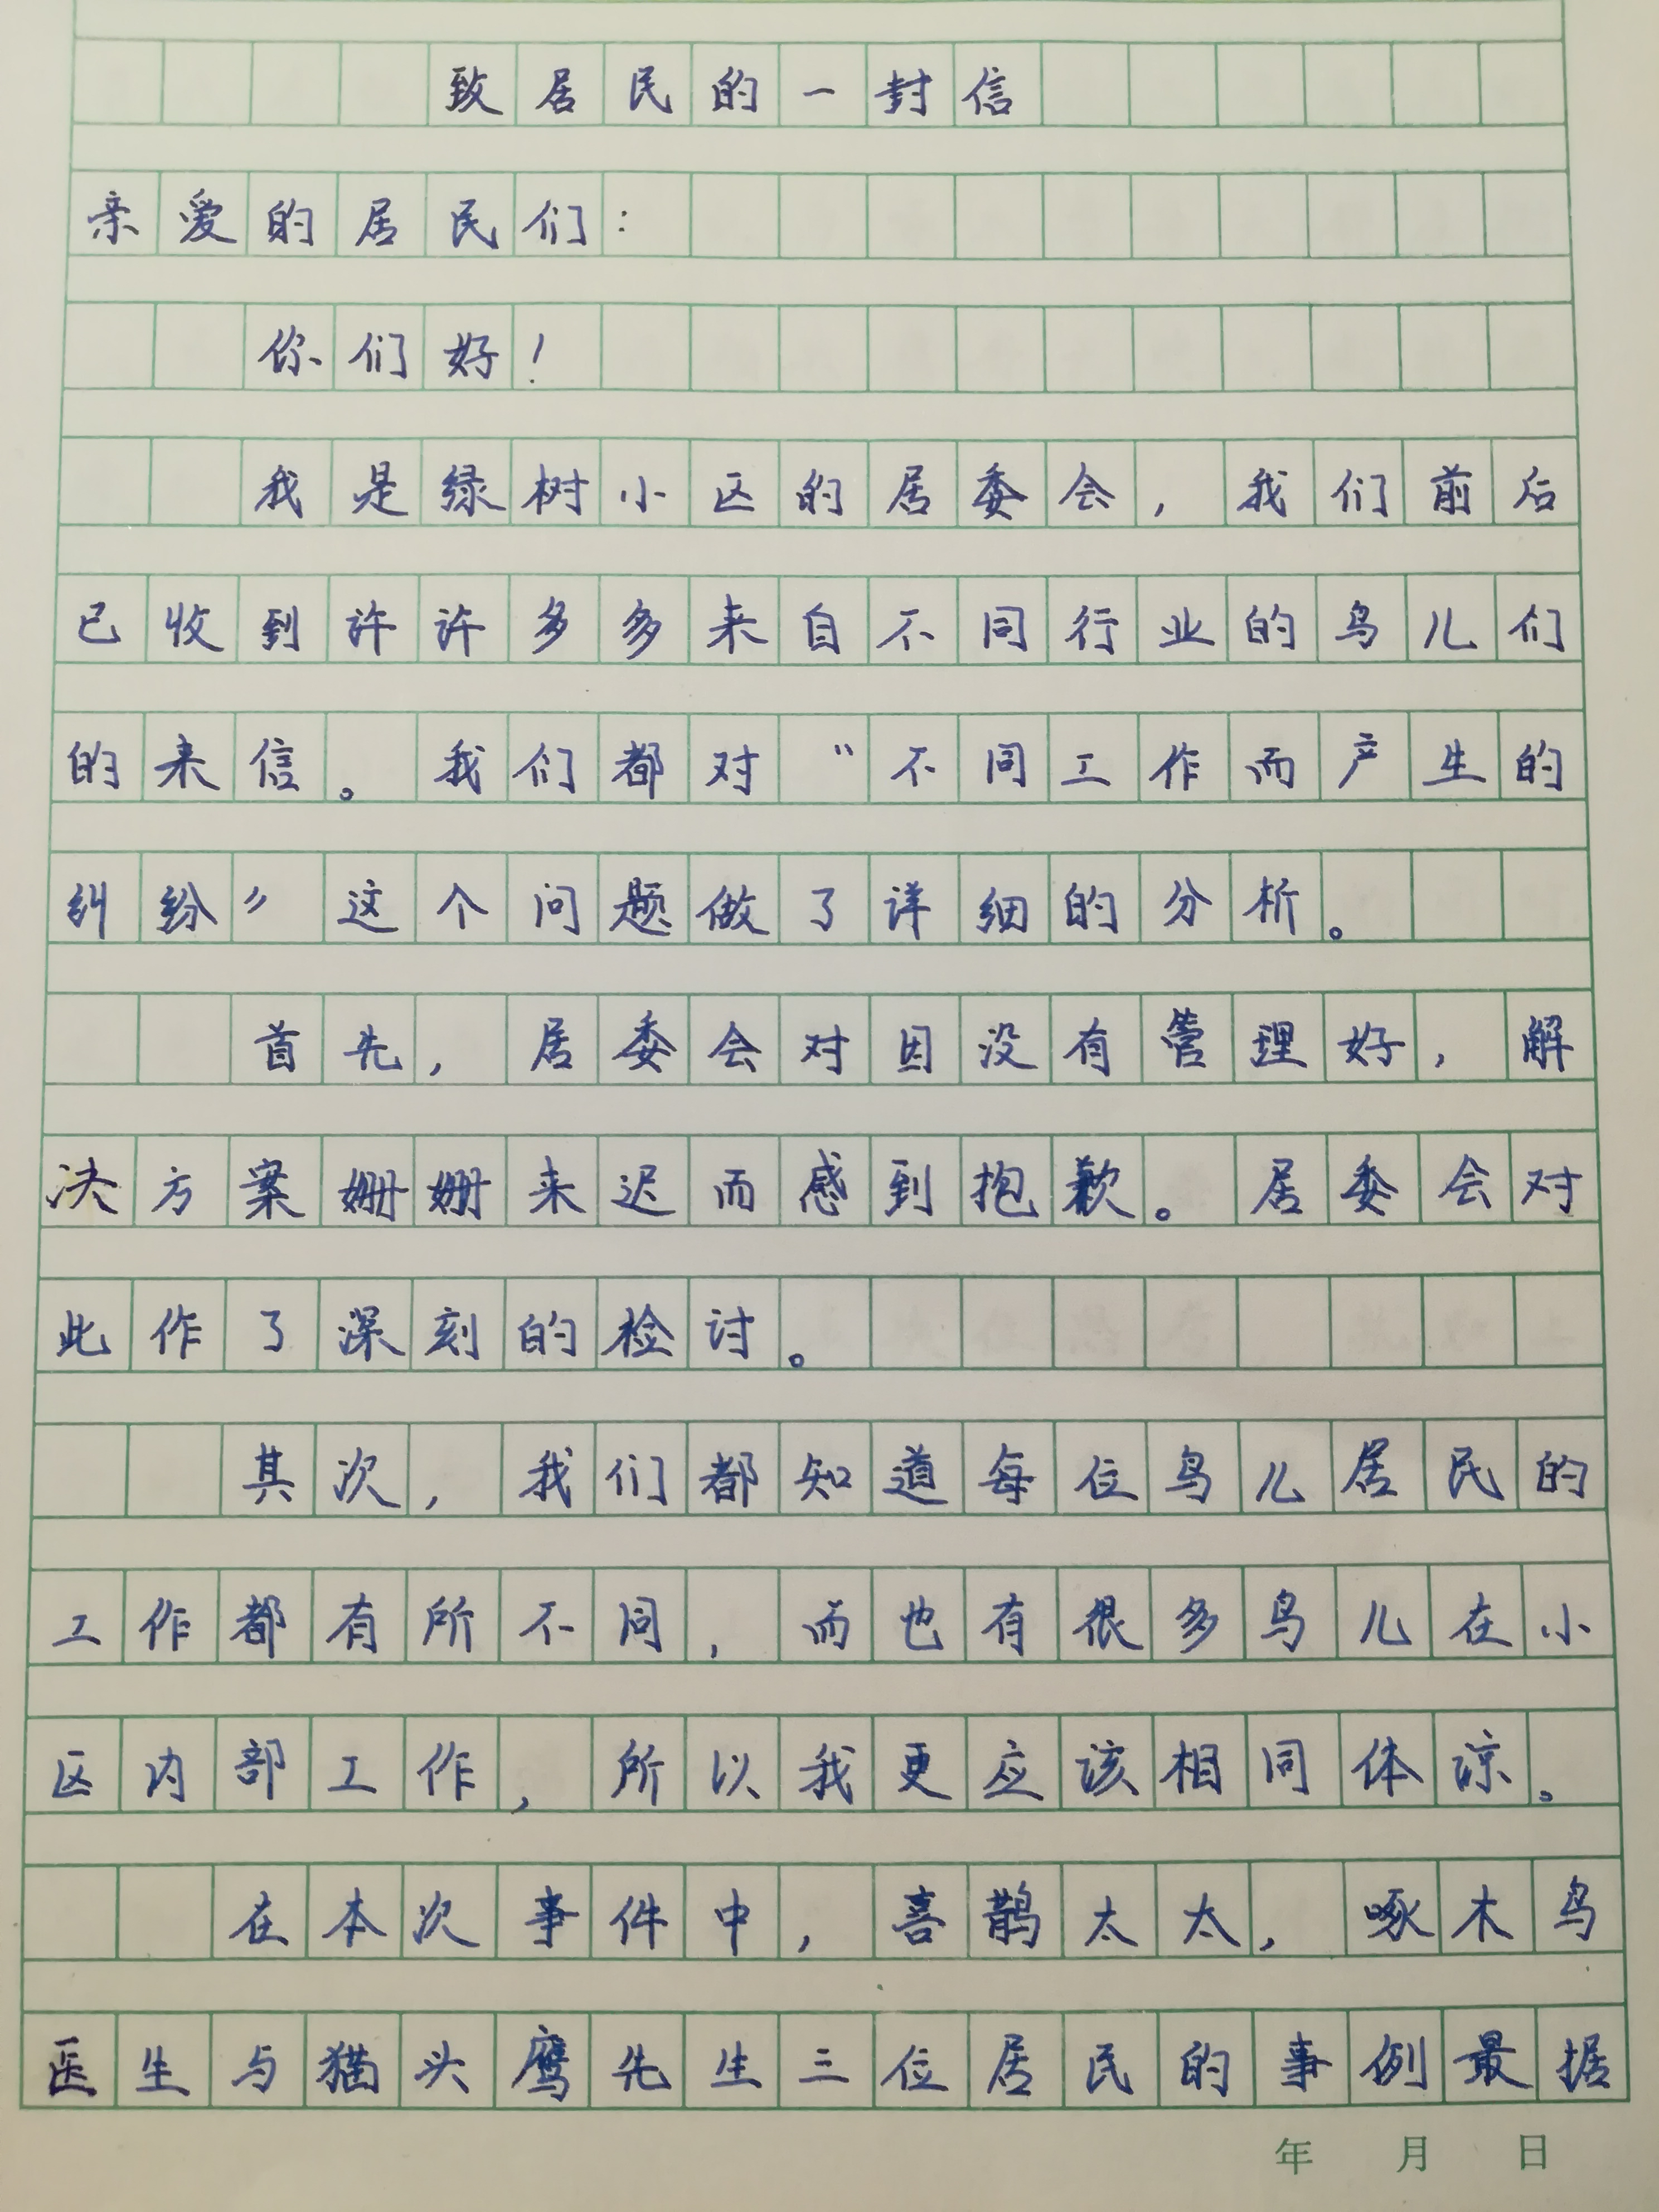 致居民的一封信
亲爱的居民们：
你们好！
我是绿树小区的居委会，我们前后
已收到许许多多来自不同行业的鸟儿们
的来信。我们都对“不同工作而产生的
纠纷”这个问题做了详细的分析。
首先，居委会对因没有管理好，解
决方案姗姗来迟而感到抱歉。居委会对
此作了深刻的检讨。
其次，我们都知道每位鸟儿居民的
工作都有所不同，而也有很多鸟儿在小
区内部工作，所以我更应该相同体谅。
在本次事件中，喜鹊太太，啄木鸟
医生与猫头鹰先生三位居民的事例最据
年 月 日